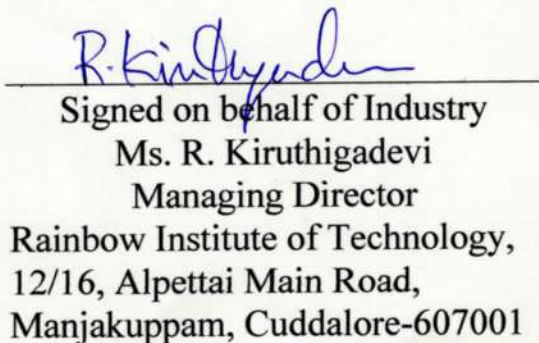 R. Kiruthigadevi
Signed on behalf of Industry
Ms. R. Kiruthigadevi
Managing Director
Rainbow Institute of Technology,
12/16, Alpettai Main Road,
Manjakuppam, Cuddalore-607001